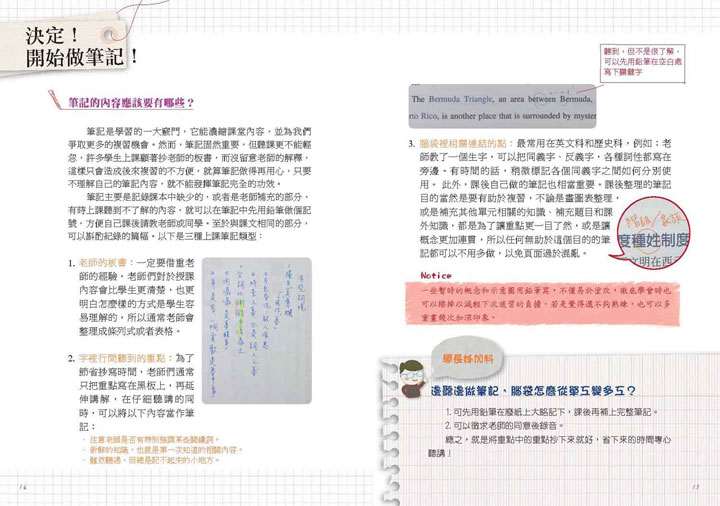 決定！
開始做筆記！
筆記的內容應該要有哪些？
筆記是學習的一大竅門，它能濃縮課堂內容，並為我們
爭取更多的複習機會。然而，筆記固然重要，但聽課更不能輕
忽，許多學生上課顧著抄老師的板書，而沒留意老師的解釋，
這樣只會造成後來複習的不方便，就算筆記做得再用心，只要
不理解自己的筆記內容，就不能發揮筆記完全的功效。
筆記主要是記錄課本中缺少的，或者是老師補充的部分，
有時上課聽到不了解的內容，就可以在筆記中先用鉛筆做個記
號，方便自己課後請教老師或同學。至於與課文相同的部分，
可以斟酌紀錄的篇幅。以下是三種上課筆記類型：
1. 老師的板書：一定要借重老
師的經驗，老師們對於授課
內容會比學生更清楚，也更
明白怎麼樣的方式是學生容
易理解的，所以通常老師會
整理成條列式或者表格。
2. 字裡行間聽到的重點：為了
節省抄寫時間，老師們通常
只把重點寫在黑板上，再延
伸講解，在仔細聽講的同
時，可以將以下內容當作筆
記：
· 注意老師是否有特別強調某些關鍵詞。
· 新鮮的知識，也就是第一次知道的相關內容。
· 雖然聽過，但總是記不起來的小地方。
16
聽到，但不是很了解，
可以先用鉛筆在空白處
寫下關鍵字
The Bermuda Triangle, an area between Bermuda,
rto Rico, is another place that is surrounded by myster
3. 腦袋裡相關連結的點：最常用在英文科和歷史科，例如：老
師教了一個生字，可以把同義字、反義字，各種詞性都寫在
旁邊。有時間的話，稍微標記各個同義字之間如何分別使
用。 此外，課後自己做的筆記也相當重要。課後整理的筆記
目的當然是要有助於複習，不論是畫圖表整理，
或是補充其他單元相關的知識、補充題目和課
外知識，都是為了讓重點更一目了然，或是讓
概念更加連貫，所以任何無助於這個目的的筆
記都可以不用多做，以免頁面過於混亂。
度種姓制度
文明在西元
Notice
一些暫時的概念和示意圖用鉛筆寫，不僅易於塗改，徹底學會時也
可以擦掉以減輕下次複習的負擔。若是覺得還不夠熟練，也可以多
重畫幾次加深印象。
學長姊加料
邊聽邊做筆記，腦袋怎麼從單工變多工？
1.可先用鉛筆在廢紙上大略記下，課後再補上完整筆記。
2.可以徵求老師的同意後錄音。
總之，就是將重點中的重點抄下來就好，省下來的時間專心
聽講！
17